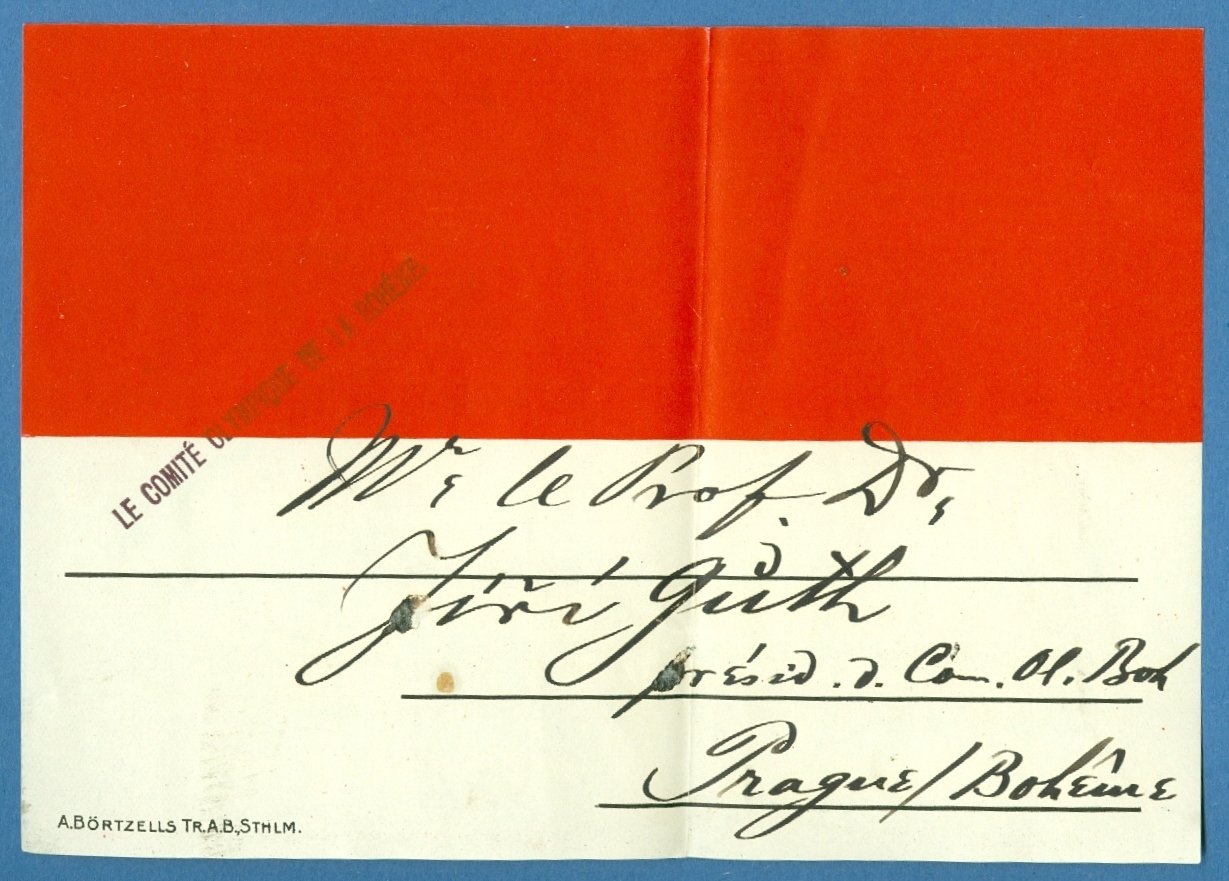 LE COMITÉ OLYMPIQUE DE LA BOHÊME
Mr. le Prof. Dr.
Jiří Guth
présid. d. Com. Ol. Boh
Prague/Bohême
A.BÖRTZELLS TR.A.B.,STHLM.